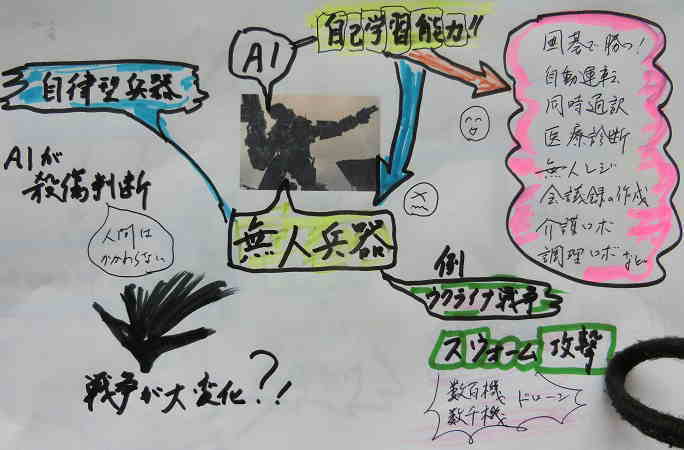 自己学習能力!!
AI
囲碁で勝つ!
自動運転
同時通訳
医療診断
無人レジ
会議録の作成
介護ロボ
調理ロボなど
自律型兵器
AIが
殺傷判断
人間は
かかわらない
無人兵器
例
ウクライナ戦争
スウォーム攻撃
数百機、ドローン
数千機
戦争が大変化?!